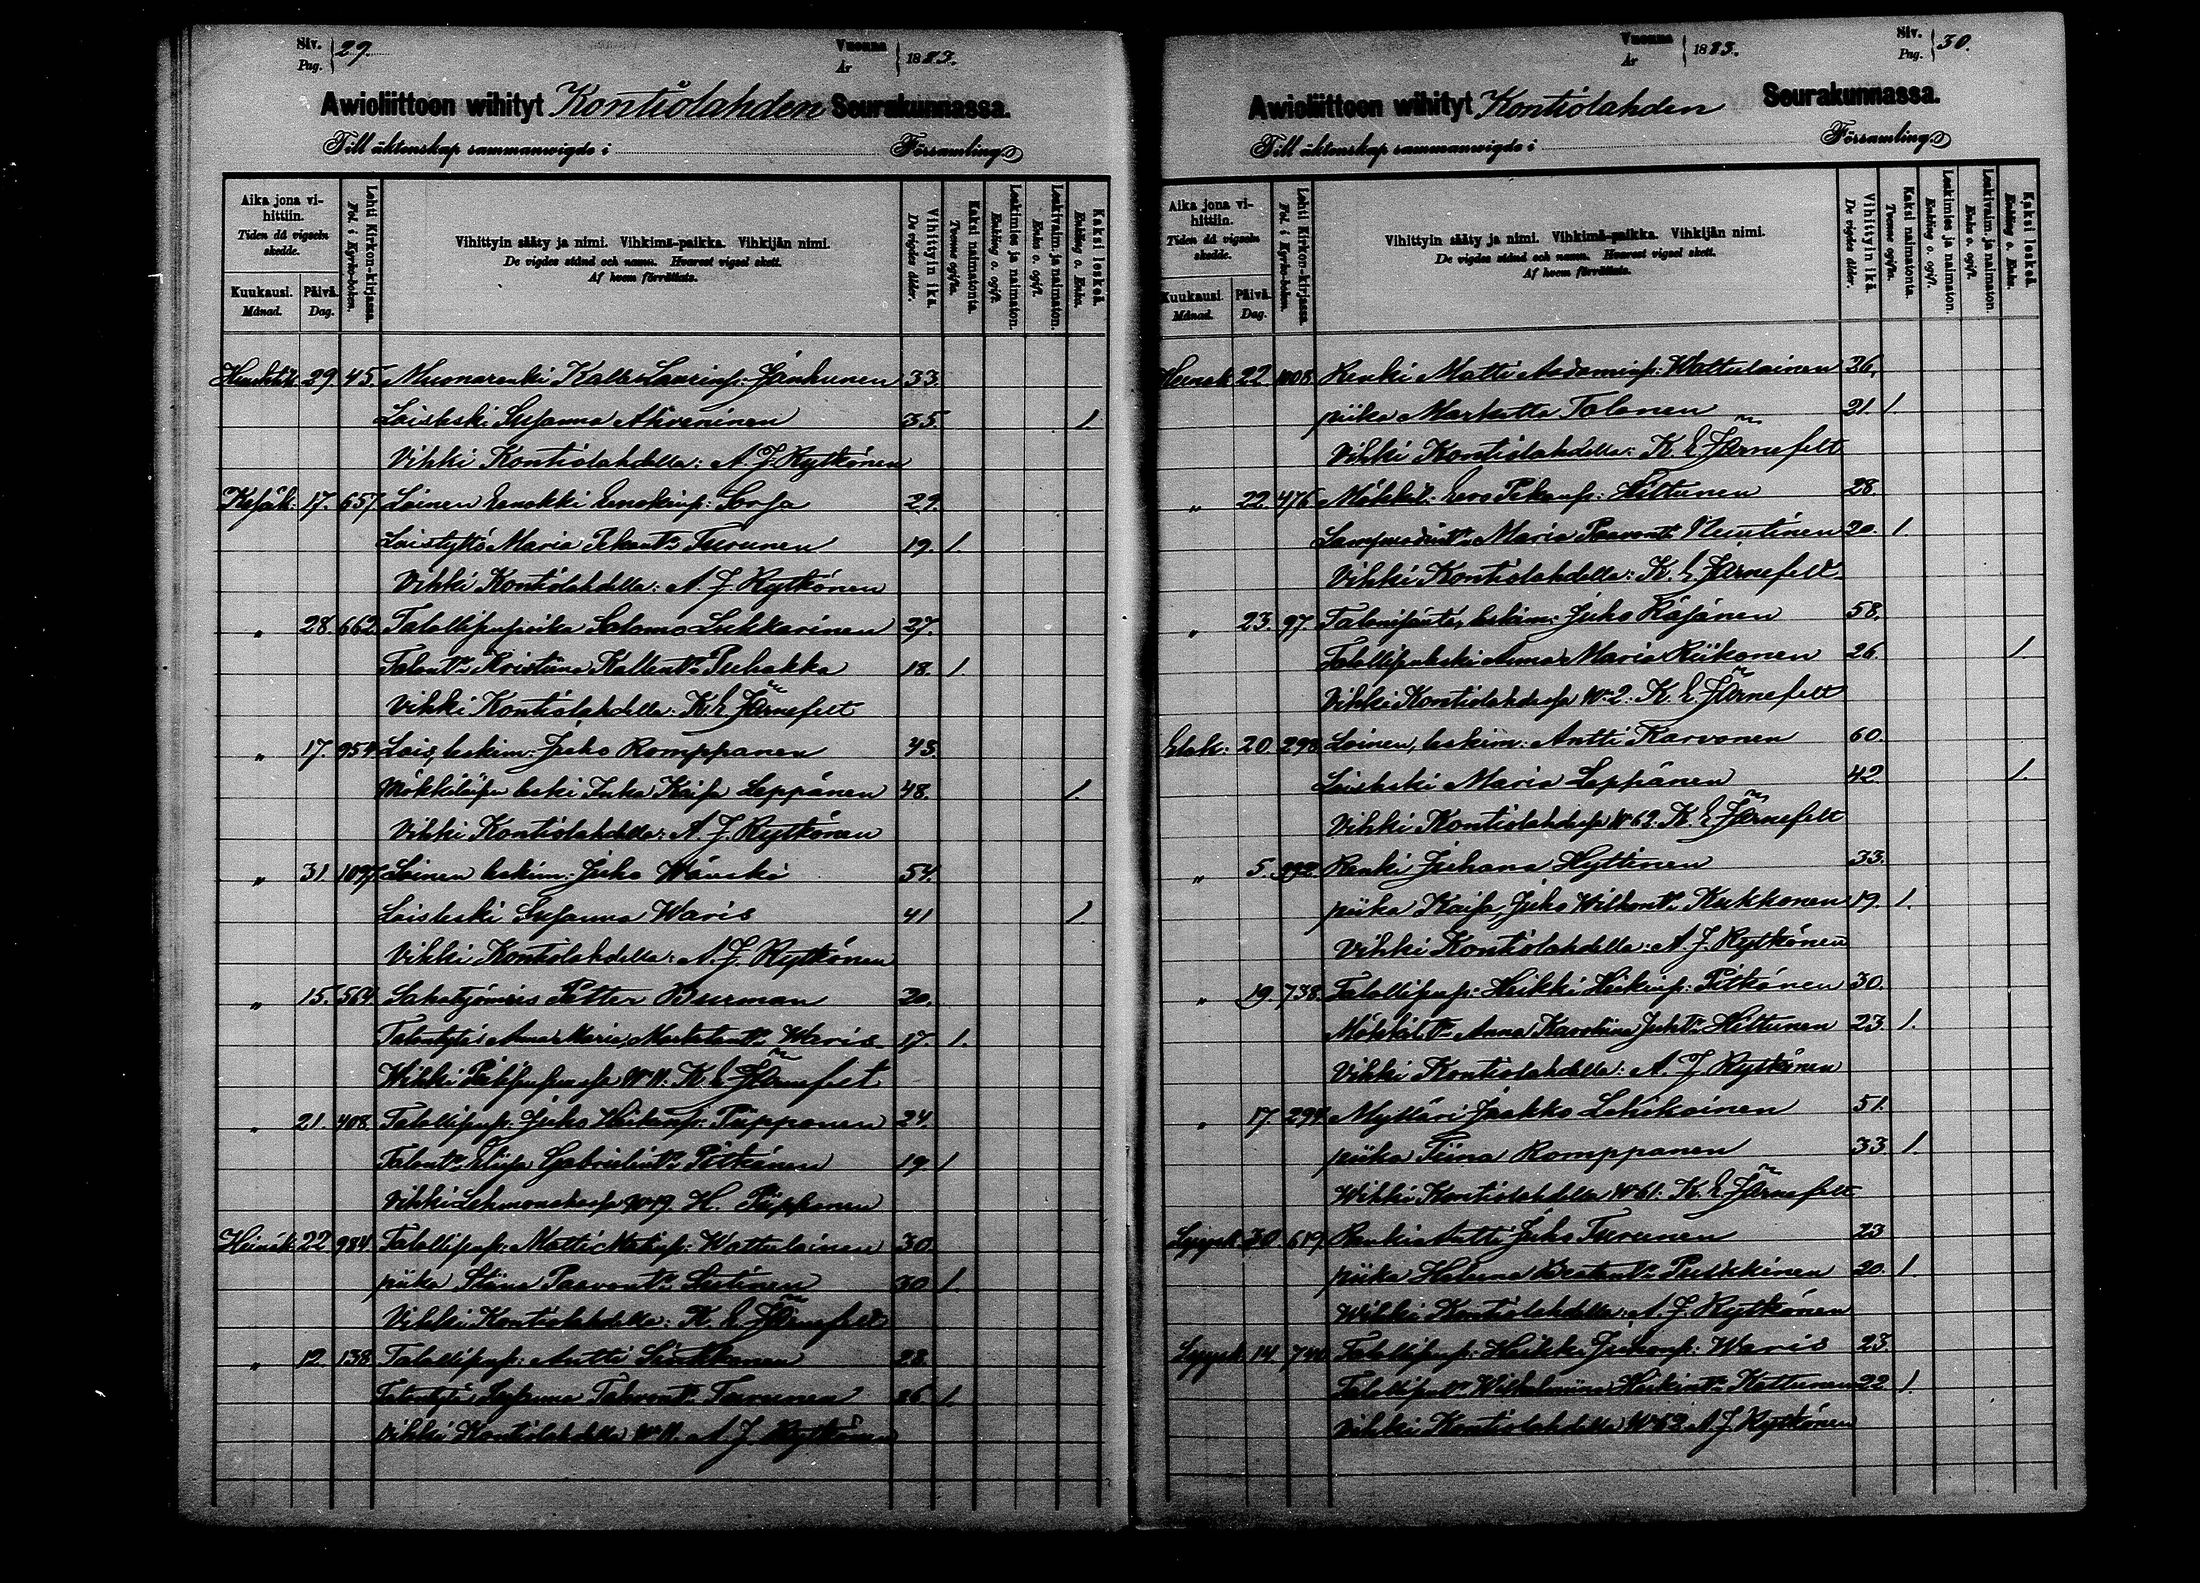 Siv. Pag. 29.
Vuonna År 1883.
Awioliittoon wihityt Kontiolahden Seurakunnassa.
Till äktenskap sammanwigde i Församling
Aika jona vihittiin. Tiden då vigseln skedde.
Kuukausi. Månad. Päivä. Dag.
Lehti Kirkon-kirjassa. Fol. i Kyrko-boken.
Vihittyin sääty ja nimi. Vihkimä-paikka. Vihkijän nimi.
De vigdes stånd och namn. Hvarest vigsel skett.
Af hvem förrättats.
Vihittyin ikä. De vigdes ålder.
Kaksi naimatonta. Tvenne ogifta.
Leskimies ja naimaton. Enkling o. ogift.
Leskivaim. ja naimaton. Enka o. ogift.
Kaksi leskeä. Enkling o. Enka.
29 45 Muonarenki Kalle Laurinp: Janhunen 33.
Loisleski Susanna Ahveninen 35. 1.
Vihki Kontiolahdella: A. J. Rytkönen
Kesäk: 17. 657 Loinen Eenokki Eenokinp: Sorsa 29.
Loistyttö Maria Pekant. Turunen 19. 1.
Vihki Kontiolahdella: A. J. Rytkönen
" 28. 662 Talollisenpoika Salomo Lukkarinen 27.
Talont. Kristiina Kallent. Puhakka 18. 1.
Vihki Kontiolahdella: K. E. Järnefelt
" 17. 954 Lois, leskim: Juho Romppanen 43.
Mökkiläisen leski Inka Kaisa Leppänen 48. 1.
Vihki Kontiolahdella: A. J. Rytkönen
" 31. 1097 Loinen leskim: Juho Wänskä 54.
Loisleski Susanna Waris 41 1
Vihki Kontiolahdella: A. J. Rytkönen
" 15. 564 Sahatyömies Petter Burman 20.
Talontytö Anna Maria Waris 17. 1.
Wihki K. E. Järnefelt
" 21. 408 Talollisenp: Juho Heikinp: Piipponen 24.
Talont. Eliisa Gabrielint. Pitkänen 19. 1
Vihki Lehmonaholla No 19. H. Piipponen
Heinäk 22 984 Talollisenp: Matti Matinp: Wattulainen 30.
piika Stiina Paavont. Sutinen 30 1.
Vihki Kontiolahdella: K. E. Järnefelt
" 12. 138 Talollisenp: Antti Sinkkonen 28.
Talontytö Susanna Turunen 26 1.
Vihki Kontiolahdella A. J. Rytkönen
Vuonna År 1883.
Siv. Pag. 30.
Awioliittoon wihityt Kontiolahden Seurakunnassa.
Till äktenskap sammanwigde i Församling
Aika jona vihittiin. Tiden då vigseln skedde.
Kuukausi. Månad. Päivä. Dag.
Lehti Kirkon-kirjassa. Fol. i Kyrko-boken.
Vihittyin sääty ja nimi. Vihkimä-paikka. Vihkijän nimi.
De vigdes stånd och namn. Hvarest vigsel skett.
Af hvem förrättats.
Vihittyin ikä. De vigdes ålder.
Kaksi naimatonta. Tvenne ogifta.
Leskimies ja naimaton. Enkling o. ogift.
Leskivaim. ja naimaton. Enka o. ogift.
Kaksi leskeä. Enkling o. Enka.
Heinäk 22 1008 Renki Matti Aadaminp: Wattulainen 26.
piika Marketta Tolonen 21. 1.
Vihki Kontiolahdella: K. E. Järnefelt
" 22. 476 Mökkil: Eero Pekanp: Hiltunen 28.
Maria Paavont. Nenntinen 20. 1.
Vihki Kontiolahdella: K. E. Järnefelt
" 23. 97. Talonisäntä, leskim: Juho Räsänen 58.
Talollisenleski Anna Maria Riikonen 26. 1.
Vihki Kontiolahdessa No 2: K. E. Järnefelt
Elok: 20. 298. Loinen, leskim: Antti Karvonen 60.
Loisleski Maria Leppänen 42. 1.
Vihki Kontiolahdessa No 63. K. E. Järnefelt
" 5. 992. Renki Juhana Hyttinen 33.
piika Kaisa, Juho Wilhont. Kukkonen 19. 1.
Vihki Kontiolahdella: A. J. Rytkönen
" 19. 738. Talollisenp: Heikki Heikinp: Pitkänen 30.
Mökkilt. Anna Karoliina Juhot. Hiltunen 23. 1.
Vihki Kontiolahdella: A. J. Rytkönen
" 17. 294. Mylläri Jaakko Lehikoinen 51.
piika Tiina Romppanen 33. 1.
Wihki Kontiolahdella No 61: K. E. Järnefelt
Syysk 30. 619. Renki Antti Juho Turunen 23
piika Helena Puukkinen 20. 1.
Wihki Kontiolahdella: A. J. Rytkönen
Syysk 14 740 Talollisenp: Heikki Juhonp: Waris 23.
Talollisent. Wilhelmiina Heikint. Kettunen 22 1.
Vihki Kontiolahdella No 63 A. J. Rytkönen